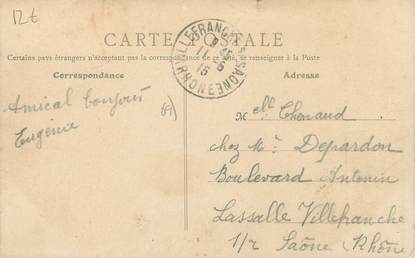 12t
CARTE POSTALE
Certains pays étrangers n'acceptant pas la correspondance de ce côté, se renseigner à la Poste
Correspondance
Adresse
VILLEFRANCHE S SAONE
RHONE
Amical bonjour
Eugénie
69
Melle Chenaud
chez Mr Depardon
Boulevard Antonin
Lassalle Villefranche
s/r Saône (Rhône)